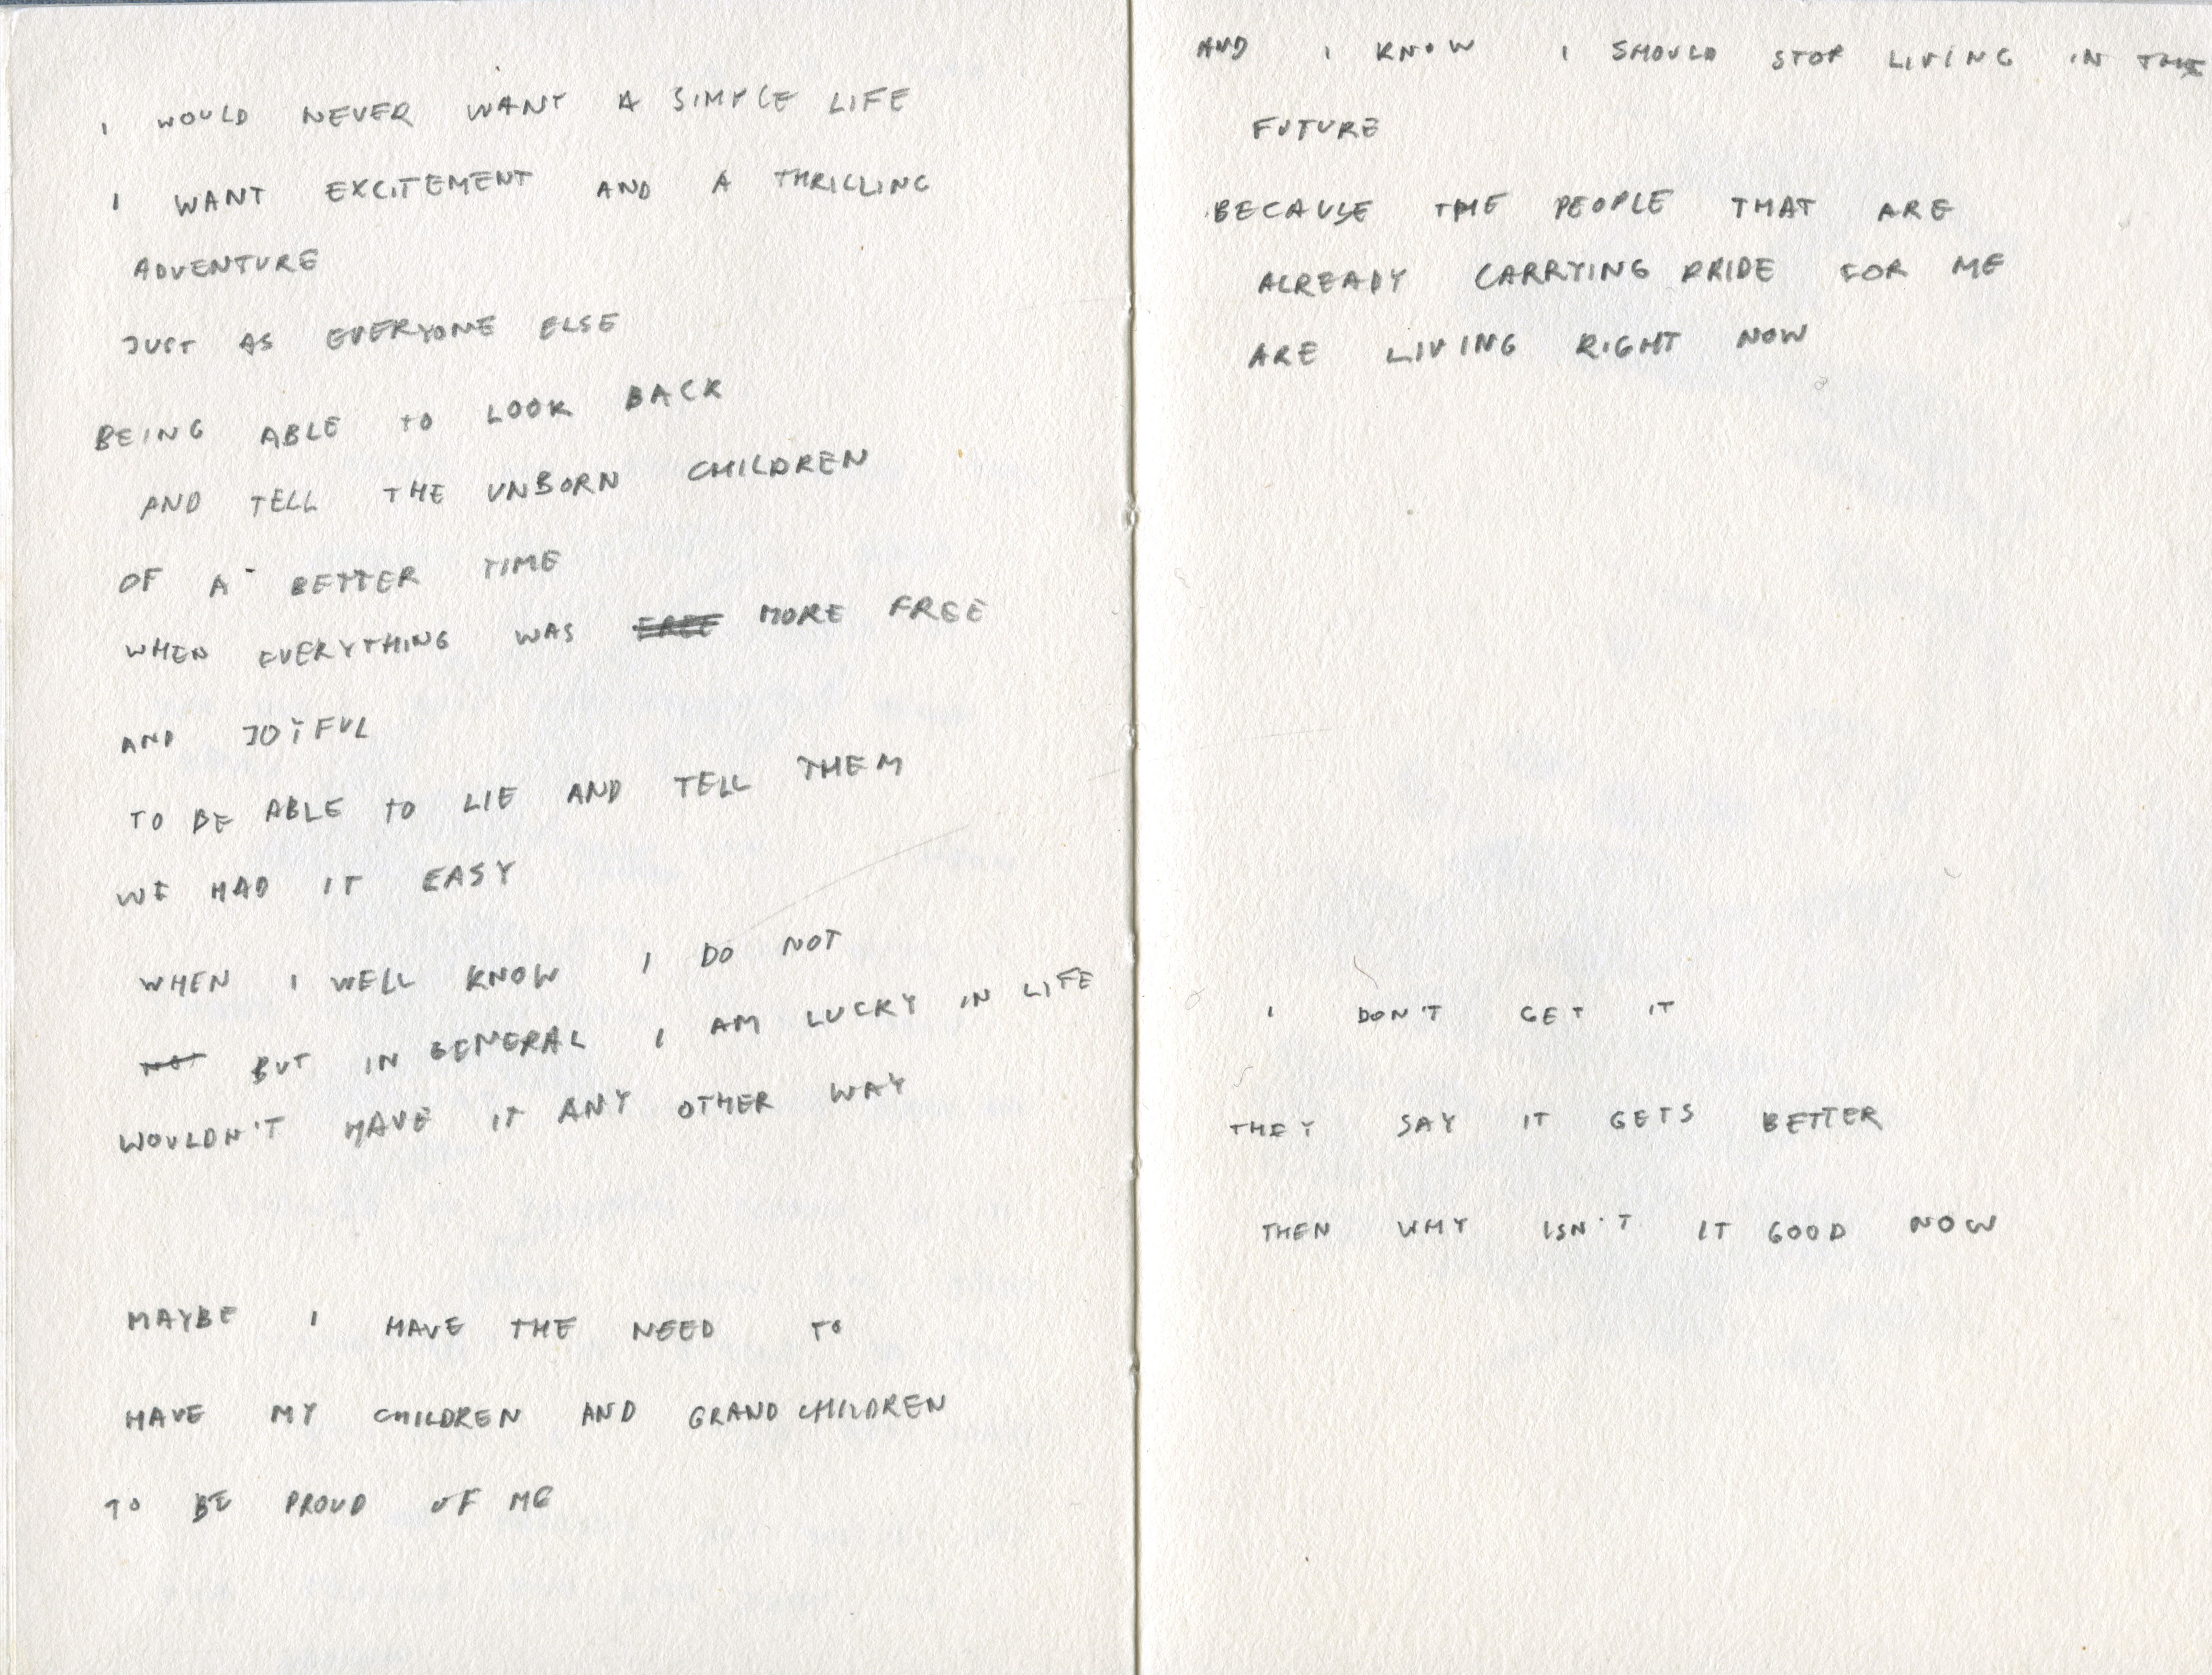 I WOULD NEVER WANT A SIMPLE LIFE
I WANT EXCITEMENT AND A THRILLING
ADVENTURE
JUST AS EVERYONE ELSE
BEING ABLE TO LOOK BACK
AND TELL THE UNBORN CHILDREN
OF A BETTER TIME
WHEN EVERYTHING WAS FREE MORE FREE
AND JOYFUL
TO BE ABLE TO LIE AND TELL THEM
WE HAD IT EASY
WHEN I WELL KNOW I DO NOT
NOT BUT IN GENERAL I AM LUCKY IN LIFE
WOULDN'T HAVE IT ANY OTHER WAY
MAYBE I HAVE THE NEED TO
HAVE MY CHILDREN AND GRANDCHILDREN
TO BE PROUD OF ME
AND I KNOW I SHOULD STOP LIVING IN THE
FUTURE
BECAUSE THE PEOPLE THAT ARE
ALREADY CARRYING PRIDE FOR ME
ARE LIVING RIGHT NOW
I DON'T GET IT
THEY SAY IT GETS BETTER
THEN WHY ISN'T IT GOOD NOW